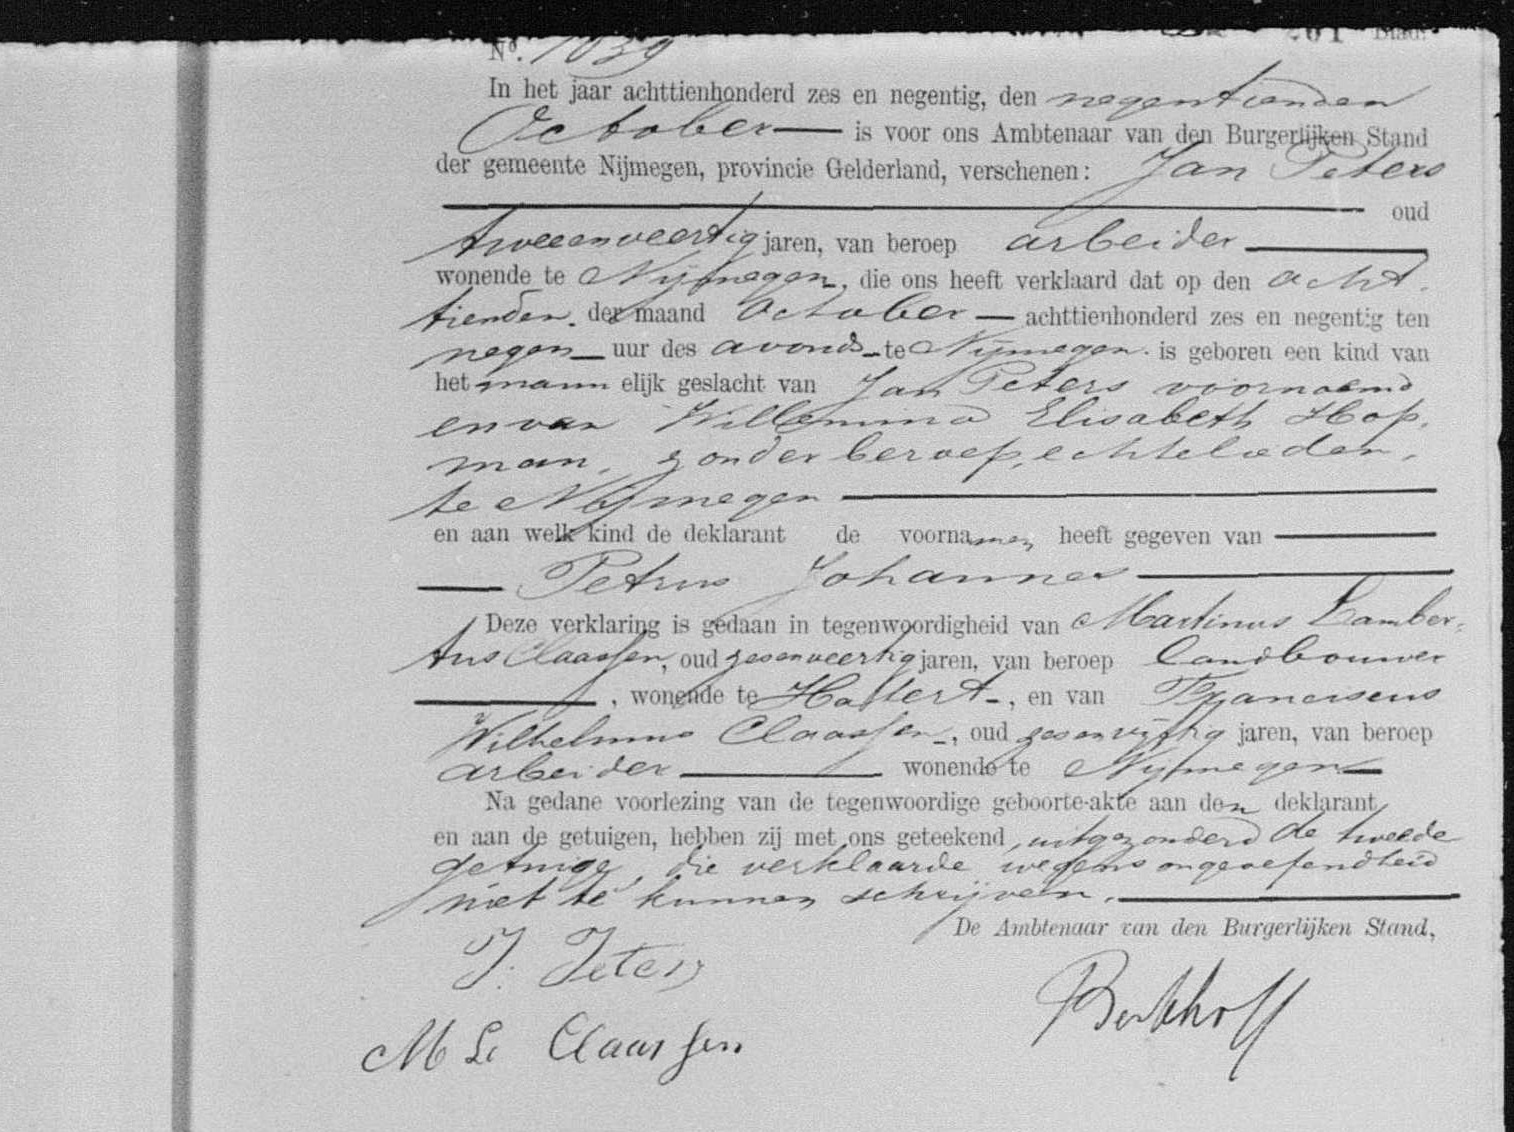 No. 1039 201 Blad.
In het jaar achttienhonderd zes en negentig, den negentienden
October — is voor ons Ambtenaar van den Burgerlijken Stand
der gemeente Nijmegen, provincie Gelderland, verschenen: Jan Peters
oud
tweeenveertig jaren, van beroep arbeider
wonende te Nijmegen, die ons heeft verklaard dat op den acht
tienden der maand October — achttienhonderd zes en negentig ten
negen uur des avonds te Nijmegen is geboren een kind van
het mannelijk geslacht van Jan Peters voornoemd
en van Willemina Elisabeth Hop,
man, zonder beroep, echtelieden,
te Nijmegen
en aan welk kind de deklarant de voornamen heeft gegeven van
Petrus Johannes
Deze verklaring is gedaan in tegenwoordigheid van Martinus Lamber-
tus Claassen, oud zesenveertig jaren, van beroep landbouwer
, wonende te Hatert, en van Franciscus
Wilhelmus Claassen, oud zesenvijftig jaren, van beroep
arbeider wonende te Nijmegen
Na gedane voorlezing van de tegenwoordige geboorte-akte aan den deklarant
en aan de getuigen, hebben zij met ons geteekend, uitgezonderd de tweede
getuige, die verklaarde wegens ongeoefendheid
niet te kunnen schrijven.
De Ambtenaar van den Burgerlijken Stand,
J. Peters
M L Claassen